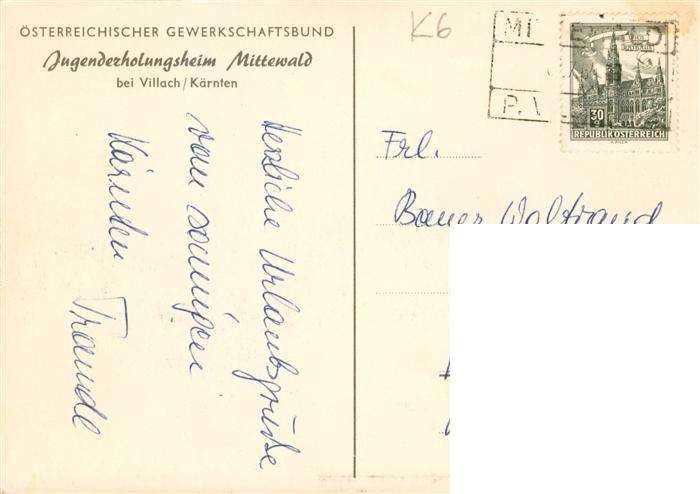 ÖSTERREICHISCHER GEWERKSCHAFTSBUND
Jugenderholungsheim Mittewald
bei Villach/Kärnten
Herzliche Urlaubsgrüße
vom sonnigen
Kärnten Traudl
K6
P.
30
REPUBLIK ÖSTERREICH
Frl.
Bauer Waltraud